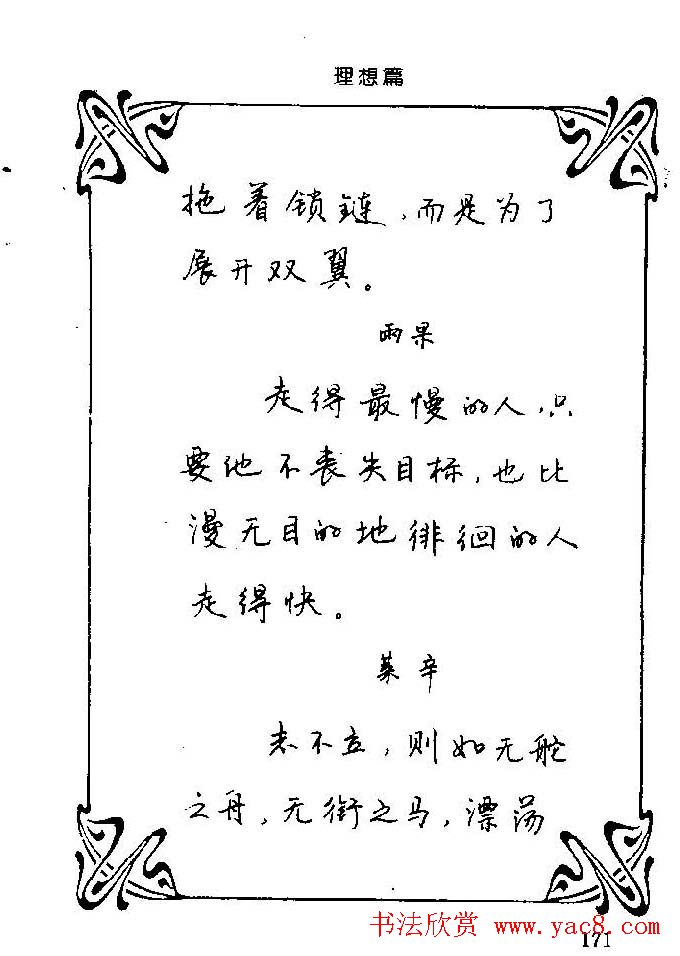 理想篇
拖着锁链，而是为了
展开双翼。
雨果
走得最慢的人，只
要他不丧失目标，也比
漫无目的地徘徊的人
走得快。
莱辛
志不立，则如无舵
之舟，无衔之马，漂荡
书法欣赏 www.yac8.com
171